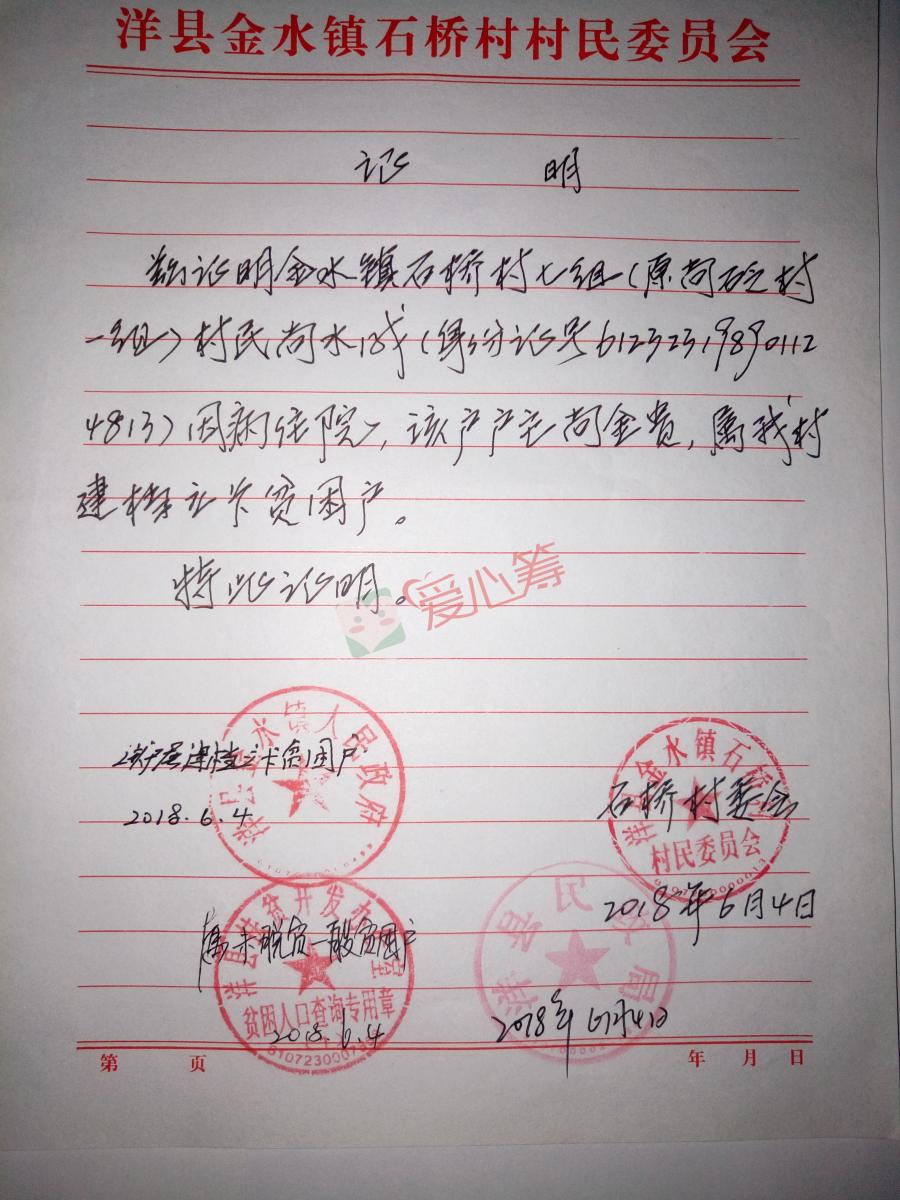 洋县金水镇石桥村村民委员会
证 明
兹证明金水镇石桥村七组(原尚砭村
一组)村民尚水成(身份证号6123231989 0112
4813)因病住院,该户户主尚金贵,属我村
建档立卡贫困户。
特此证明。
爱心筹
洋县金水镇人民政府
该户是建档立卡贫困户
2018.6.4
洋县金水镇石桥
石桥村委会
村民委员会
2018年6月4日
洋县扶贫开发办公室
属未脱贫一般贫困户
贫困人口查询专用章
2018.6.4
洋县民政局
2018年6月4日
第 页
年 月 日